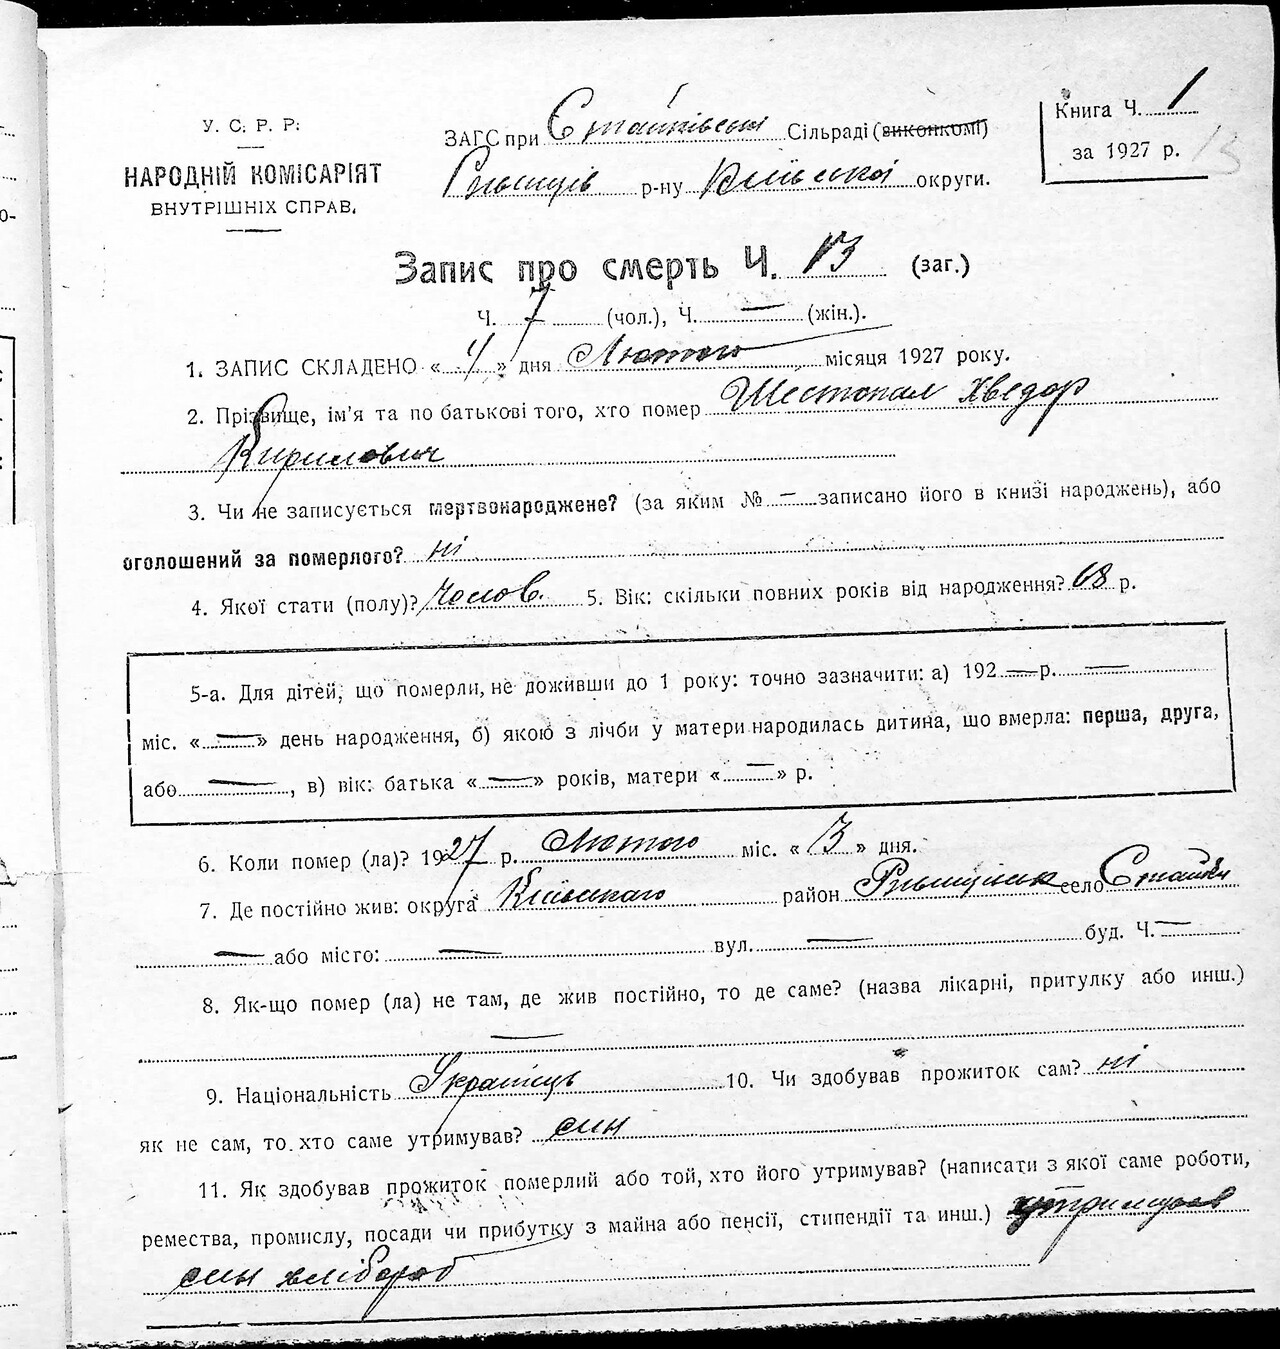 У. С. Р. Р.
НАРОДНІЙ КОМІСАРІЯТ
ВНУТРІШНІХ СПРАВ.
ЗАГС при Стайківській Сільраді (виконкомі)
р-ну Київської округи.
Книга Ч. 1
за 1927 р.
13
Запис про смерть Ч. 13 (заг.)
Ч. 7 (чол.), Ч. — (жін.).
1. ЗАПИС СКЛАДЕНО « 4 » дня Лютого місяця 1927 року.
2. Прізвище, ім'я та по батькові того, хто помер Шестопал Хведор
Кирилович
3. Чи не записується мертвонароджене? (за яким № — записано його в книзі народжень), або
оголошений за померлого? ні
4. Якої стати (полу)? чолов. 5. Вік: скільки повних років від народження? 68 р.
5-а. Для дітей, що померли, не доживши до 1 року: точно зазначити: а) 192 — р. —
міс. « — » день народження, б) якою з лічби у матери народилась дитина, що вмерла: перша, друга,
або — , в) вік: батька « — » років, матери « — » р.
6. Коли помер (ла)? 1927 р. Лютого міс. « 3 » дня.
7. Де постійно жив: округа Київського район село Стайки
— або місто: — вул. — буд. Ч. —
8. Як-що помер (ла) не там, де жив постійно, то де саме? (назва лікарні, притулку або инш.)
—
9. Національність Українець 10. Чи здобував прожиток сам? ні
як не сам, то хто саме утримував? син
11. Як здобував прожиток померлий або той, хто його утримував? (написати з якої саме роботи,
ремества, промислу, посади чи прибутку з майна або пенсії, стипендії та инш.) утримував
син хлібороб